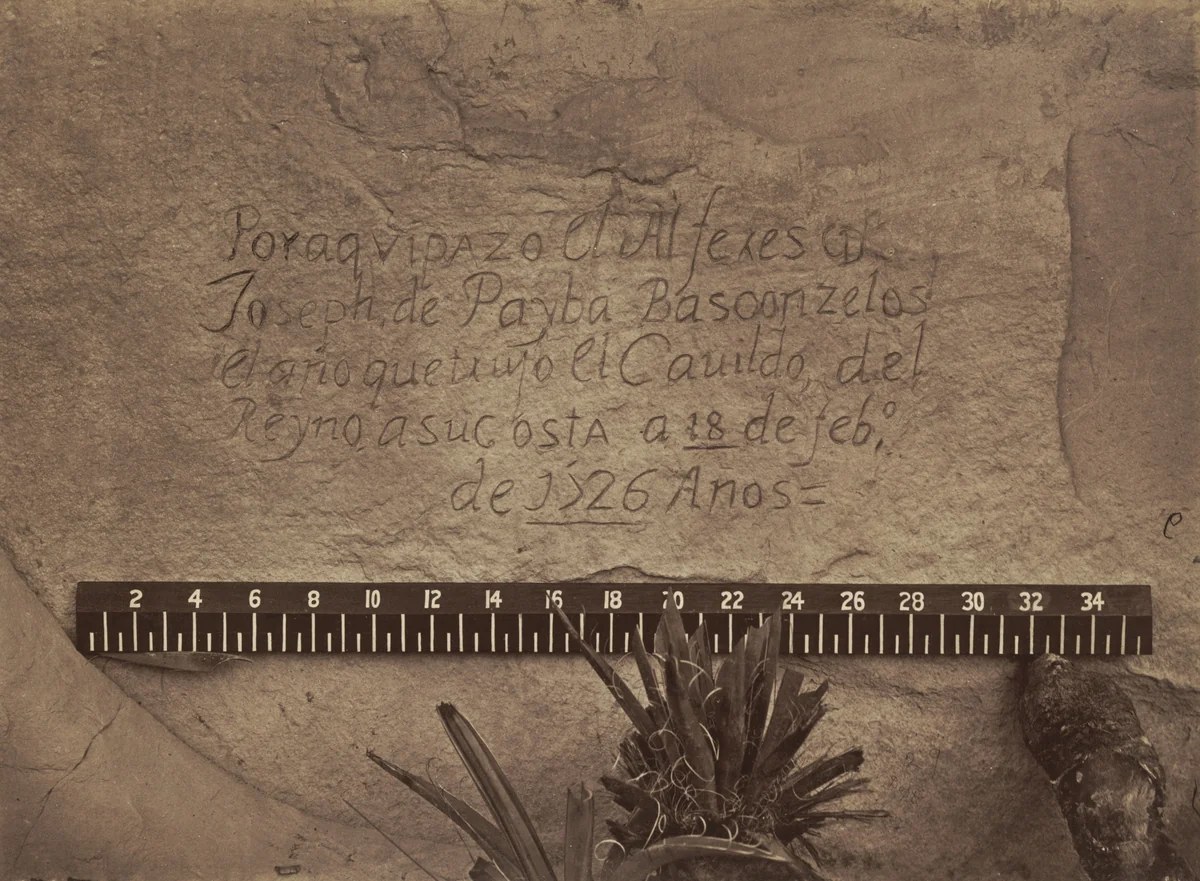 Por aqvi pazo el Alferes Dn
Joseph de Payba Basconzelos
el año que trujo el Cavildo del
Reyno a su costa a 18 de feb.º
de 1526 Años =
e
2 4 6 8 10 12 14 16 18 20 22 24 26 28 30 32 34